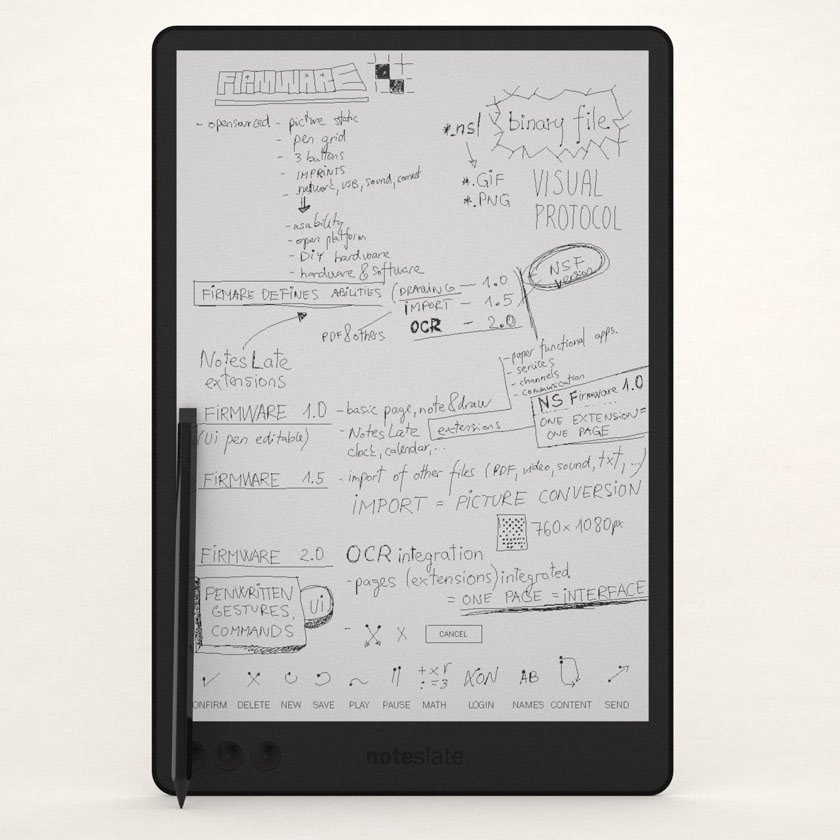 FIRMWARE
- opensourced - picture static
- pen grid
- 3 buttons
- IMPRINTS
- network, USB, sound, connect
- usability
- open platform
- DiY hardware
- hardware & software
*.nsl
binary file
*.GiF
*.PNG
VISUAL
PROTOCOL
FIRMARE DEFINES ABILITIES
(DRAWING - 1.0
iMPORT - 1.5
OCR - 2.0
NSF
version
PDF & others
NotesLate
extensions
- paper functional apps.
- services
- channels
- communication
NS Firmware 1.0
ONE EXTENSION=
ONE PAGE
FiRMWARE 1.0
(Ui pen editable)
- basic page, note & draw
- NotesLate extensions
clock, calendar,...
FiRMWARE 1.5
- import of other files (PDF, video, sound, txt, ...)
iMPORT = PiCTURE CONVERSiON
760 x 1080px
FiRMWARE 2.0
OCR integration
- pages (extensions) integrated
= ONE PAGE = iNTERFACE
PENWRiTTEN
GESTURES,
COMMANDS
Ui
- X
CANCEL
+ x √
: - = 3
AB
ONFIRM DELETE NEW SAVE PLAY PAUSE MATH LOGIN NAMES CONTENT SEND
noteslate